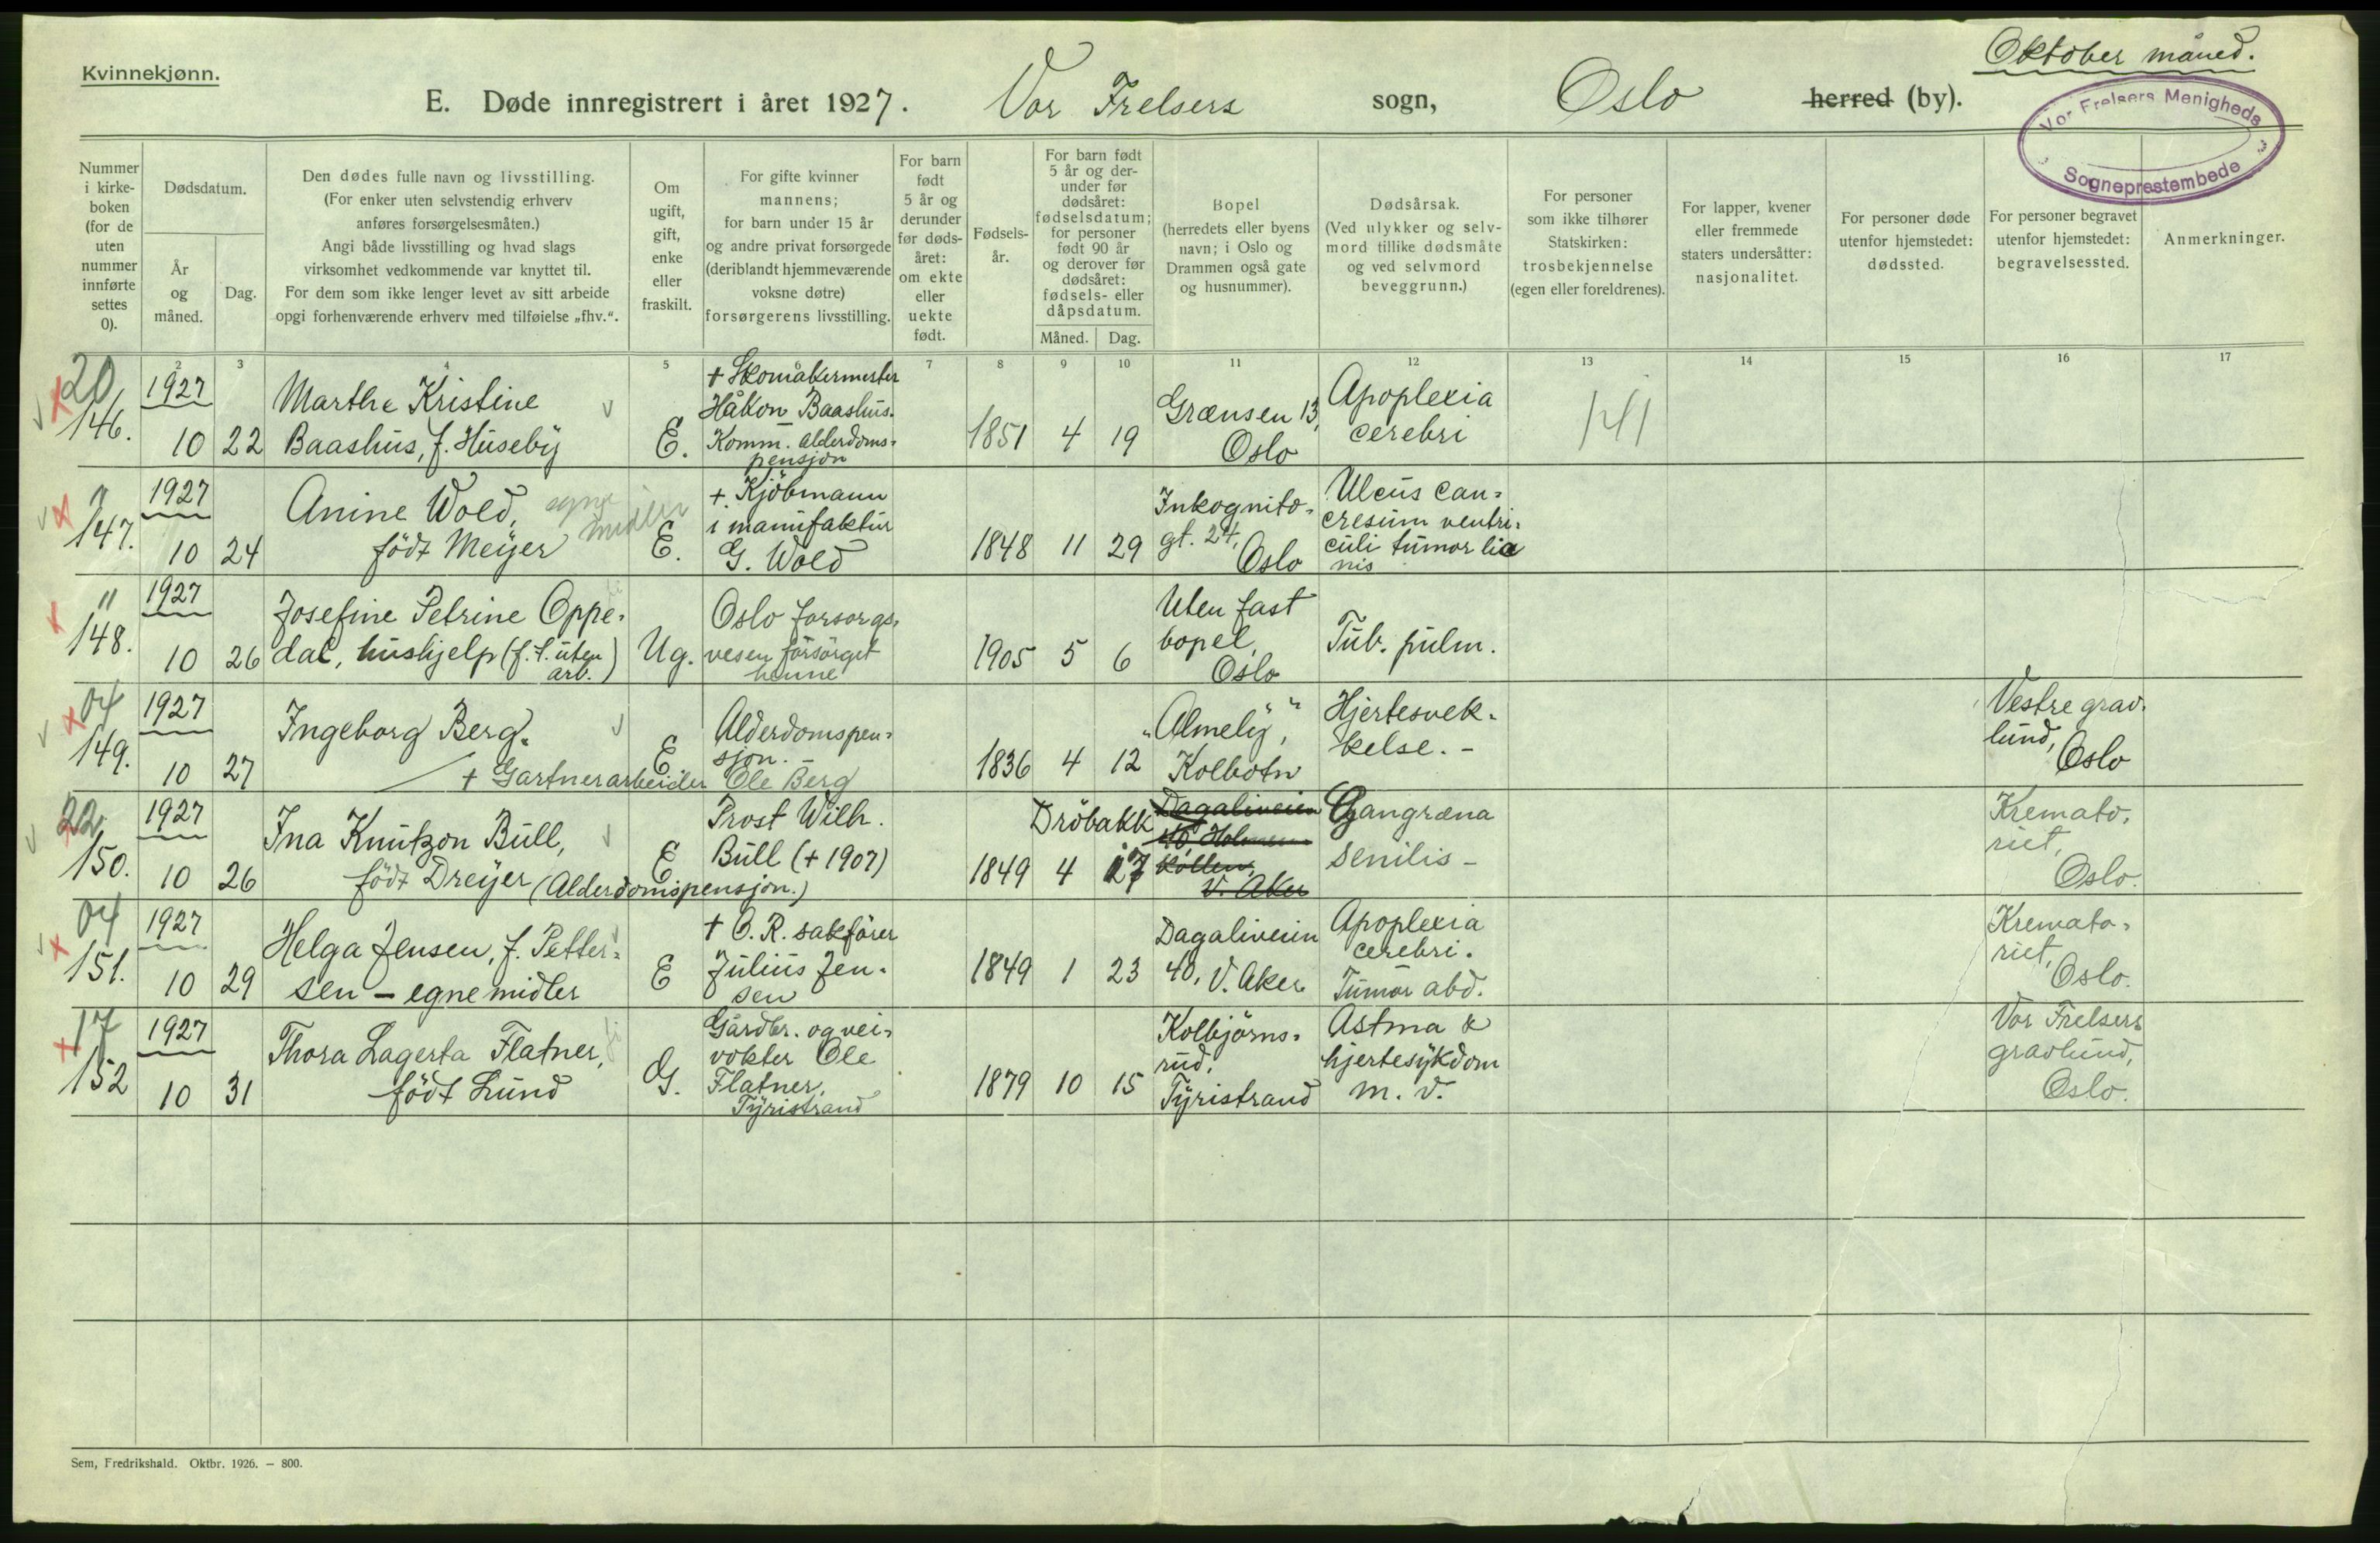 Oktober måned.
Kvinnekjønn.
E. Døde innregistrert i året 1927. Vor Frelsers sogn, Oslo herred (by).
Vor Frelsers Menigheds
Sogneprestembede
Nummer i kirke-boken (for de uten nummer innførte settes 0).
Dødsdatum.
År og måned.
Dag.
Den dødes fulle navn og livsstilling.
(For enker uten selvstendig erhverv
anføres forsørgelsesmåten.)
Angi både livsstilling og hvad slags
virksomhet vedkommende var knyttet til.
For dem som ikke lenger levet av sitt arbeide
opgi forhenværende erhverv med tilføielse „fhv.“.
Om ugift, gift, enke eller fraskilt.
For gifte kvinner
mannens;
for barn under 15 år
og andre privat forsørgede
(deriblandt hjemmeværende
voksne døtre)
forsørgerens livsstilling.
For barn født 5 år og derunder før døds-året: om ekte eller uekte født.
Fødsels-år.
For barn født
5 år og der-
under før
dødsåret:
fødselsdatum;
for personer
født 90 år
og derover før
dødsåret:
fødsels- eller
dåpsdatum.
Måned. Dag.
Bopel
(herredets eller byens
navn; i Oslo og
Drammen også gate
og husnummer).
Dødsårsak.
(Ved ulykker og selv-
mord tillike dødsmåte
og ved selvmord
beveggrunn.)
For personer
som ikke tilhører
Statskirken:
trosbekjennelse
(egen eller foreldrenes).
For lapper, kvener
eller fremmede
staters undersåtter:
nasjonalitet.
For personer døde
utenfor hjemstedet:
dødssted.
For personer begravet
utenfor hjemstedet:
begravelsessted.
Anmerkninger.
2 3 4 5 7 8 9 10 11 12 13 14 15 16 17
20
146.
1927
10 22
Marthe Kristine
Baashus, f. Huseby
E.
+ Skomakermester
Håkon Baashus.
Komm. alderdoms-
pensjon
1851 4 19
Grænsen 13,
Oslo
Apoplexia
cerebri
141
"
147.
1927
10 24
Anine Wold, egne midler
født Meyer
E.
+ Kjøbmann
i manufaktur
G. Wold
1848 11 29
Inkognito-
gt. 24,
Oslo
Ulcus can-
crosum ventri-
culi tumor lie
nis
"
148.
1927
10 26
Josefine Petrine Oppe-
dal, hushjelp (f. t. uten
arb.)
Ug.
Oslo forsorgs-
vesen forsørget
henne
1905 5 6
Uten fast
bopel,
Oslo
Tub. pulm.
04
149.
1927
10 27
Ingeborg Berg.
E
Alderdomspen-
sjon. -
+ Gartnerarbeider Ole Berg
1836 4 12
„Almely“,
Kolbotn
Hjertesvek-
kelse. -
Vestre grav-
lund,
Oslo
22
150.
1927
10 26
Ina Knutzon Bull,
født Dreyer (Alderdomspensjon.)
E
Prost Wilh.
Bull (+ 1907)
1849 4 17
Drøbakk
Dagaliveien
40, Holmen-
kollen,
V. Aker
Gangræna
senilis -
Kremato-
riet,
Oslo.
04
151.
1927
10 29
Helga Jensen, f. Petter-
sen - egne midler
E
+ O. R. sakfører
Julius Jen-
sen
1849 1 23
Dagaliveien
40, V. Aker
Apoplexia
cerebri.
Tumor abd.
Kremato-
riet,
Oslo.
17
152
1927
10 31
Thora Lagerta Flatner,
født Lund
G.
Gårdbr. og vei-
vokter Ole
Flatner,
Tyristrand
1879 10 15
Kolbjørns-
rud,
Tyristrand
Astma &
hjertesykdom
m. v.
Vor Frelsers
gravlund,
Oslo.
Sem, Fredrikshald. Oktbr. 1926. — 800.